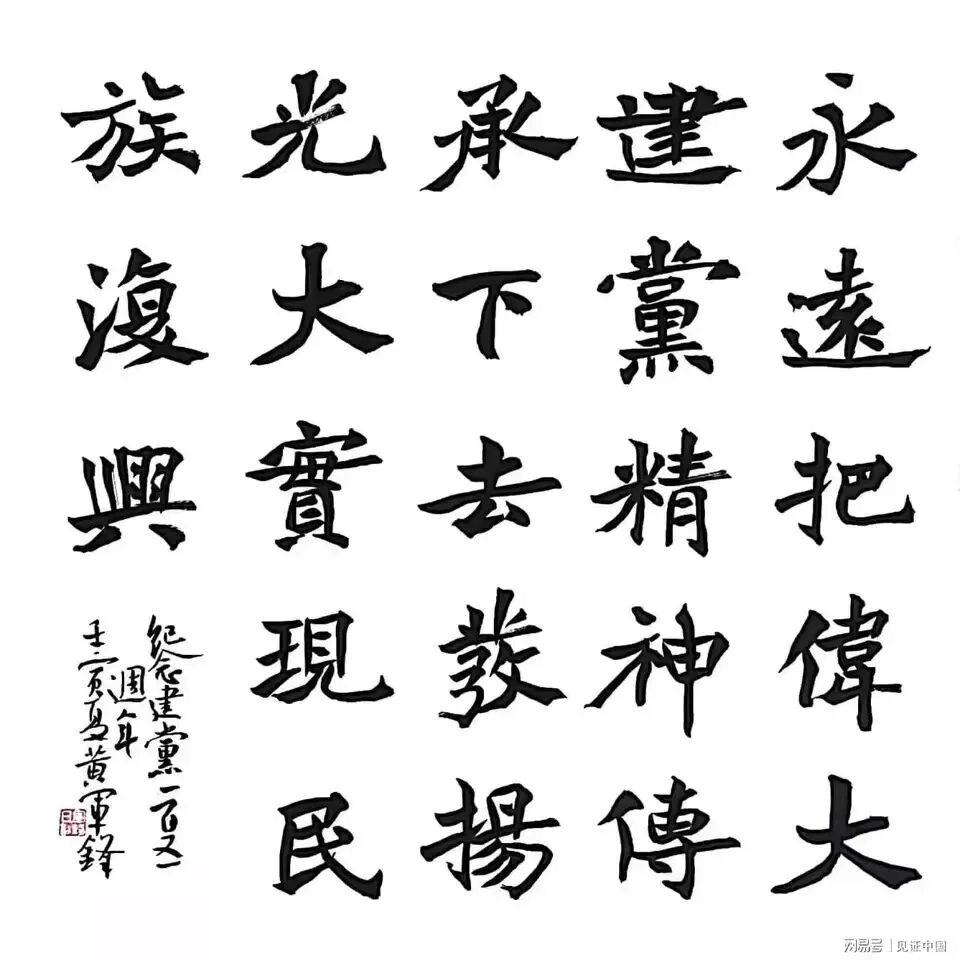 永遠把偉大
建黨精神傳
承下去發揚
光大實現民
族復興
紀念建黨一百又一
週年
壬寅夏黄軍鋒
网易号 | 见证中国